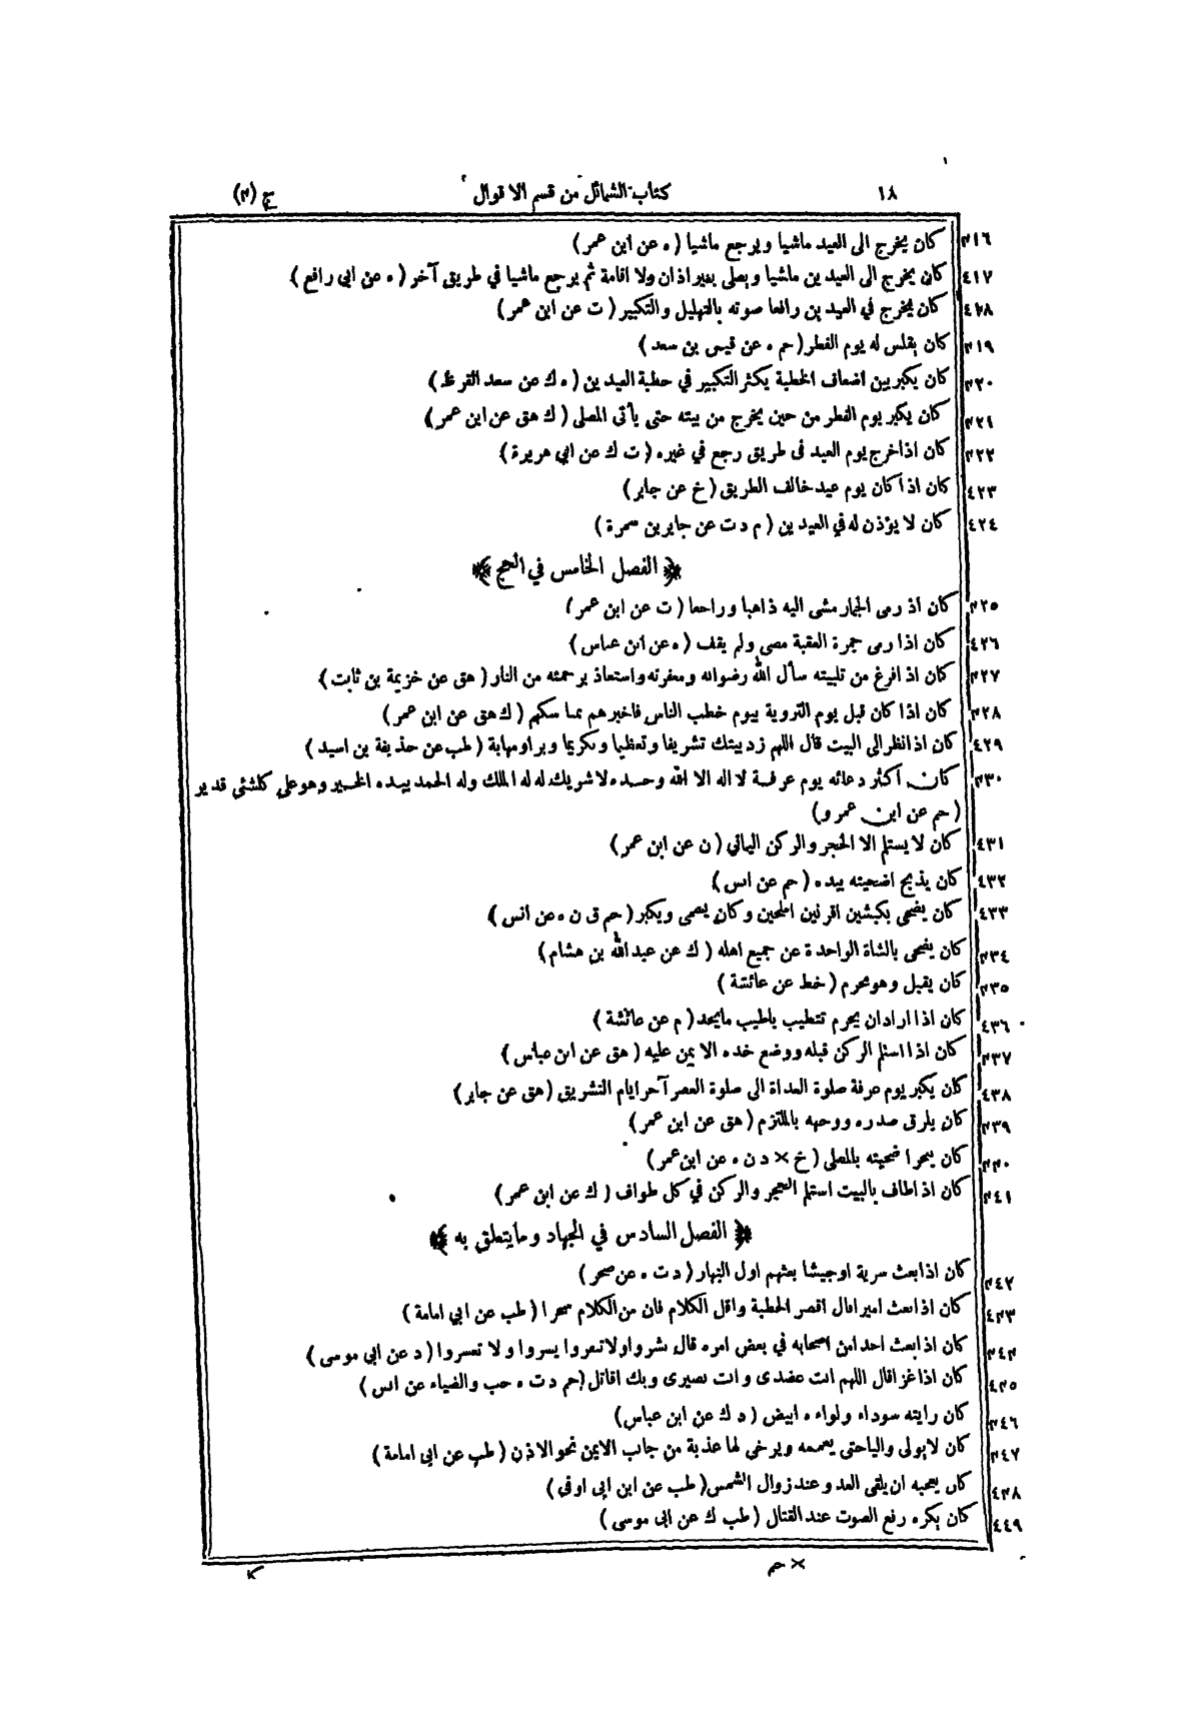 ١٨
كتاب الشمائل من قسم الاقوال
ج (٤)
٤١٦ كان يخرج الى العيد ماشيا ويرجع ماشيا (ه عن ابن عمر)
٤١٧ كان يخرج الى العيدين ماشيا ويصلى بغير اذان ولا اقامة ثم يرجع ماشيا في طريق آخر (ه عن ابى رافع)
٤١٨ كان يخرج في العيدين رافعا صوته بالتهليل والتكبير (ت عن ابن عمر)
٤١٩ كان يقلس له يوم الفطر (حم ه عن قيس بن سعد)
٤٢٠ كان يكبر بين اضعاف الخطبة يكثر التكبير في خطبة العيدين (ه ك عن سعد القرظ)
٤٢١ كان يكبر يوم الفطر من حين يخرج من بيته حتى يأتى المصلى (ك هق عن ابن عمر)
٤٢٢ كان اذا خرج يوم العيد فى طريق رجع في غيره (ت ك عن ابي هريرة)
٤٢٣ كان اذا كان يوم عيد خالف الطريق (خ عن جابر)
٤٢٤ كان لا يؤذن له في العيدين (م د ت عن جابر بن سمرة)
﴿ الفصل الخامس في الحج ﴾
٤٢٥ كان اذ رمى الجمار مشى اليه ذاهبا وراجعا (ت عن ابن عمر)
٤٢٦ كان اذا رمى جمرة العقبة مضى ولم يقف (ه عن ابن عباس)
٤٢٧ كان اذا فرغ من تلبيته سأل الله رضوانه ومغفرته واستعاذ برحمته من النار (هق عن خزيمة بن ثابت)
٤٢٨ كان اذا كان قبل يوم التروية بيوم خطب الناس فاخبرهم بمناسكهم (ك هق عن ابن عمر)
٤٢٩ كان اذا نظر الى البيت قال اللهم زد بيتك تشريفا وتعظيما وتكريما وبرا ومهابة (طب عن حذيفة بن اسيد)
٤٣٠ كان أكثر دعائه يوم عرفة لا اله الا الله وحده لا شريك له له الملك وله الحمد بيده الخير وهو على كل شئ قدير
(حم عن ابن عمرو)
٤٣١ كان لا يستلم الا الحجر والركن اليمانى (ن عن ابن عمر)
٤٣٢ كان يذبح اضحيته بيده (حم عن انس)
٤٣٣ كان يضحى بكبشين اقرنين املحين وكان يسمى ويكبر (حم ق ن ه عن انس)
٤٣٤ كان يضحى بالشاة الواحدة عن جميع اهله (ك عن عبد الله بن هشام)
٤٣٥ كان يقبل وهو محرم (خط عن عائشة)
٤٣٦ كان اذا اراد ان يحرم تتطيب باطيب مايجد (م عن عائشة)
٤٣٧ كان اذا استلم الركن قبله ووضع خده الايمن عليه (هق عن ابن عباس)
٤٣٨ كان يكبر يوم عرفة صلوة الغداة الى صلوة العصر آخر ايام التشريق (هق عن جابر)
٤٣٩ كان يلزق صدره ووجهه بالملتزم (هق عن ابن عمر)
٤٤٠ كان ينحر اضحيته بالمصلى (خ × د ن ه عن ابن عمر)
٤٤١ كان اذا طاف بالبيت استلم الحجر والركن في كل طواف (ك عن ابن عمر)
﴿ الفصل السادس في الجهاد وما يتعلق به ﴾
٤٤٢ كان اذا بعث سرية اوجيشا بعثهم اول النهار (د ت ه عن صخر)
٤٤٣ كان اذا بعث اميرا قال اقصر الخطبة واقل الكلام فان من الكلام سحرا (طب عن ابي امامة)
٤٤٤ كان اذا بعث احدا من اصحابه في بعض امره قال بشروا ولا تنفروا يسروا ولا تعسروا (د عن ابي موسى)
٤٤٥ كان اذا غزا قال اللهم انت عضدى وانت نصيرى وبك اقاتل (حم د ت ه حب والضياء عن انس)
٤٤٦ كان رايته سوداء ولواءه ابيض (د ك عن ابن عباس)
٤٤٧ كان لايولى واليا حتى يعممه ويرخي لها عذبة من جانب الايمن نحو الاذن (طب عن ابى امامة)
٤٤٨ كان يعجبه ان يلقى العدو عند زوال الشمس (طب عن ابن ابى اوفى)
٤٤٩ كان يكره رفع الصوت عند القتال (طب ك عن ابى موسى)
× حم